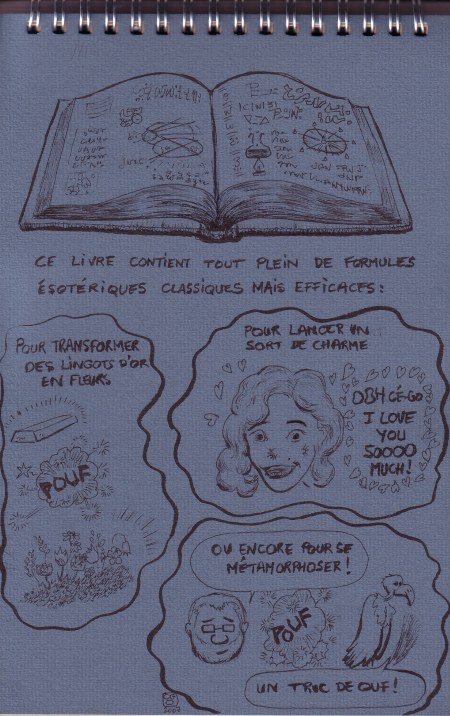 CE LIVRE CONTIENT TOUT PLEIN DE FORMULES
ÉSOTÉRIQUES CLASSIQUES MAIS EFFICACES :
POUR TRANSFORMER
DES LINGOTS D'OR
EN FLEURS
POUF
POUR LANCER UN
SORT DE CHARME
I LOVE
YOU
SOOOO
MUCH !
OU ENCORE POUR SE
MÉTAMORPHOSER !
POUF
UN TRUC DE OUF !